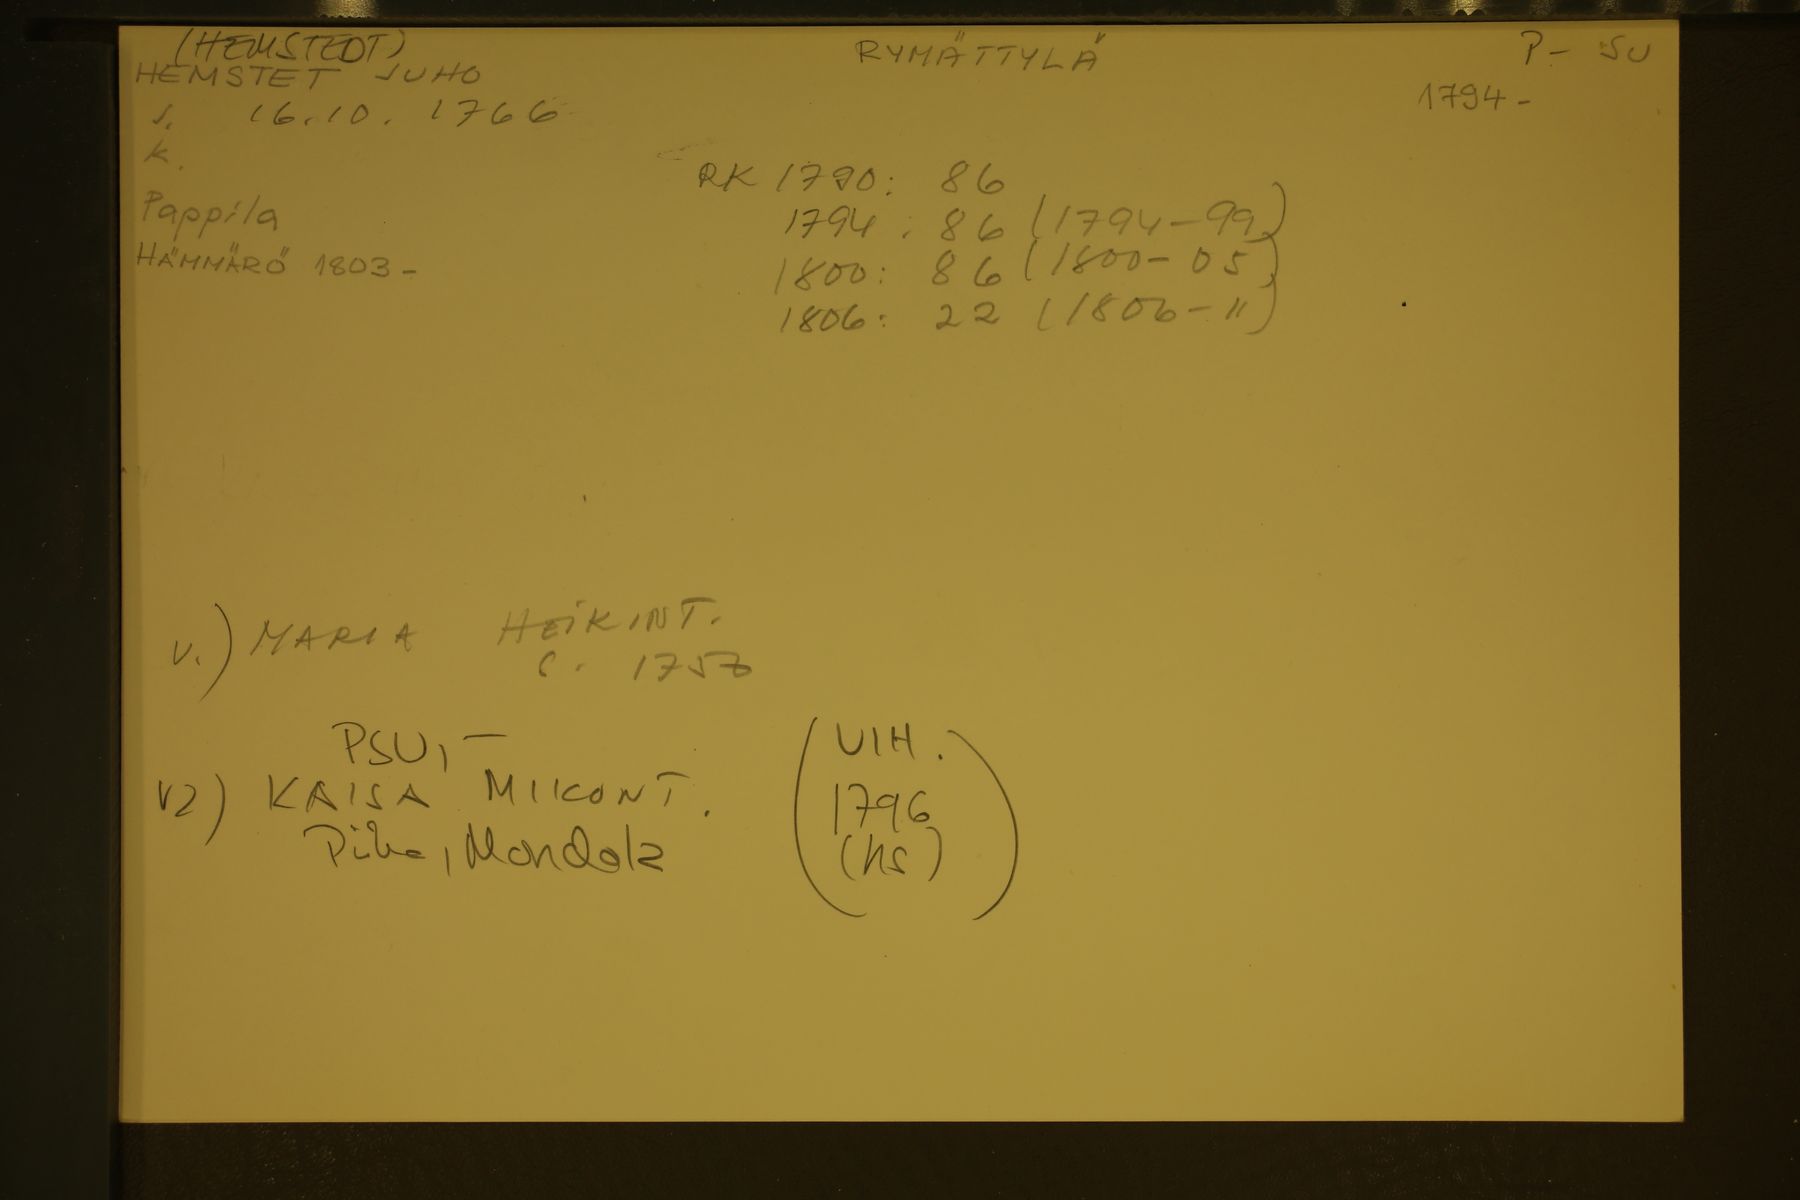 (HEMSTEDT)
HEMSTET JUHO
RYMÄTTYLÄ
P- SU
1794-
s. 16.10. 1766
k.
Pappila
HÄMMÄRÖ 1803-
RK 1790: 86
1794: 86 (1794-99)
1800: 86 (1800-05)
1806: 22 (1806-11)
v.) MARIA HEIKINT.
s. 1757
PSU, -
V2) KAISA MIIKONT.
Piika,
(VIH.
1796
(hs))